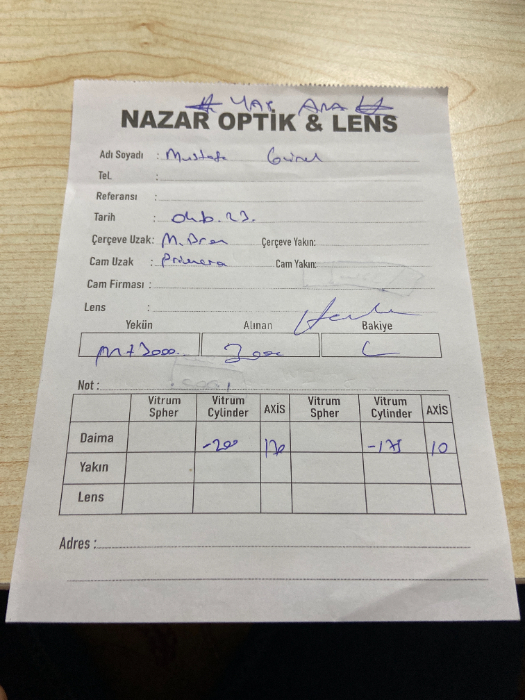 # YAZ ARA #
NAZAR OPTİK & LENS
Adı Soyadı : Mustafa
Tel. :
Referansı :
Tarih :
Çerçeve Uzak: Çerçeve Yakın:
Cam Uzak : Primera Cam Yakın:
Cam Firması :
Lens :
Yekün Alınan Bakiye
3000
Not :
Vitrum Spher Vitrum Cylinder AXİS Vitrum Spher Vitrum Cylinder AXİS
Daima -200 170 -175 10
Yakın
Lens
Adres :